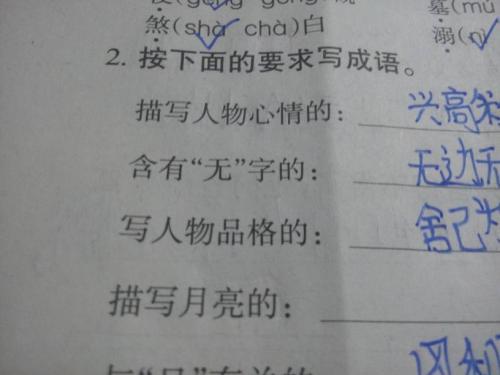 煞(shà chà)白 溺(nì
2. 按下面的要求写成语。
描写人物心情的: 兴高采
含有“无”字的: 无边无
写人物品格的: 舍己为
描写月亮的: